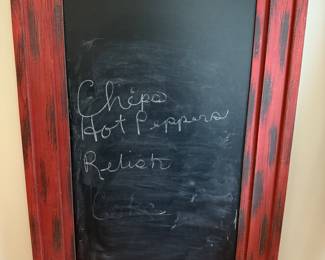 Chips
Hot Peppers
Relish